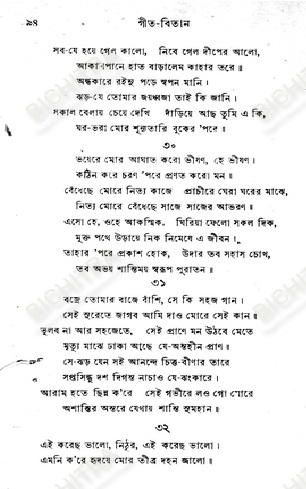 ৯৪ গীত-বিতান
সব-যে হয়ে গেল কালো, নিবে গেল দীপের আলো,
আকাশপানে হাত বাড়ালেম কাহার তরে॥
অন্ধকারে রইনু পড়ে স্বপন মানি।
ঝড়-যে তোমার জয়ধ্বজা তাই কি জানি।
সকাল বেলায় চেয়ে দেখি দাঁড়িয়ে আছ তুমি এ কি,
ঘর-ভরা মোর শূন্যতারি বুকের 'পরে॥
৩০
ভয়েরে মোর আঘাত করো ভীষণ, হে ভীষণ।
কঠিন করে চরণ 'পরে প্রণত করো মন॥
বেঁধেছে মোরে নিত্য কাজে প্রাচীরে ঘেরা ঘরের মাঝে,
নিত্য মোরে বেঁধেছে সাজে সাজের আভরণ॥
এসো হে, ওহে আকস্মিক, ঘিরিয়া ফেলো সকল দিক,
মুক্ত পথে উড়ায়ে নিক নিমেষে এ জীবন।
তাহার 'পরে প্রকাশ হোক, উদার তব সহাস চোখ,
তব অভয় শান্তিময় স্বরূপ পুরাতন॥
৩১
বজ্রে তোমার বাজে বাঁশি, সে কি সহজ গান।
সেই সুরেতে জাগব আমি দাও মোরে সেই কান॥
ভুলব না আর সহজেতে, সেই প্রাণে মন উঠবে মেতে
মৃত্যু মাঝে ঢাকা আছে যে-অন্তহীন প্রাণ॥
সে-ঝড় যেন সই আনন্দে চিত্ত-বীণার তারে
সপ্তসিন্ধু দশ দিগন্ত নাচাও যে-ঝংকারে।
আরাম হতে ছিন্ন ক'রে সেই গভীরে লও গো মোরে
অশান্তির অন্তরে যেথায় শান্তি সুমহান॥
৩২
এই করেছ ভালো, নিঠুর, এই করেছ ভালো।
এমনি ক'রে হৃদয়ে মোর তীব্র দহন জ্বালো॥